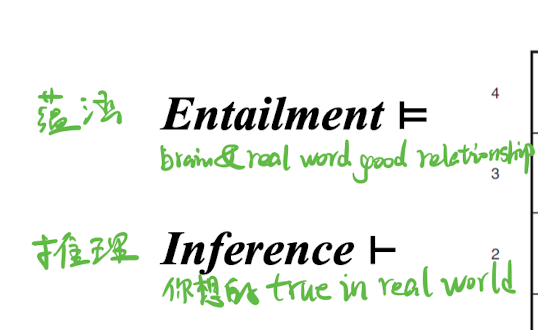 4
蕴涵 Entailment ⊨
brain & real word good relationship
3
推理 Inference ⊢
2
你想的 true in real world